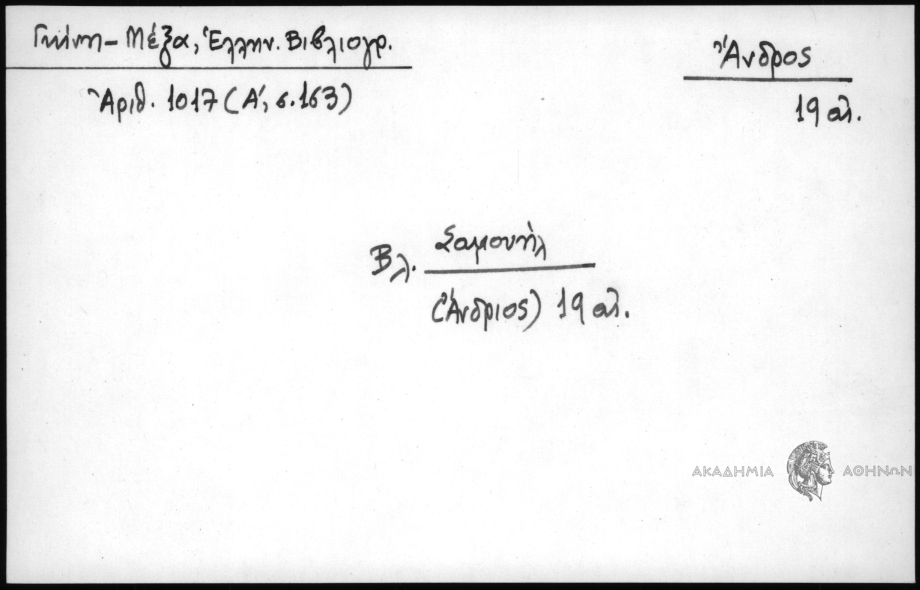 Γκίνη - Μέξα, Ἑλλην. Βιβλιογρ.
Ἀριθ. 1017 (Α', σ. 163)
Ἄνδρος
19 αἰ.
Βλ. Σαμουὴλ
(Ἄνδριος) 19 αἰ.
ΑΚΑΔΗΜΙΑ ΑΘΗΝΩΝ